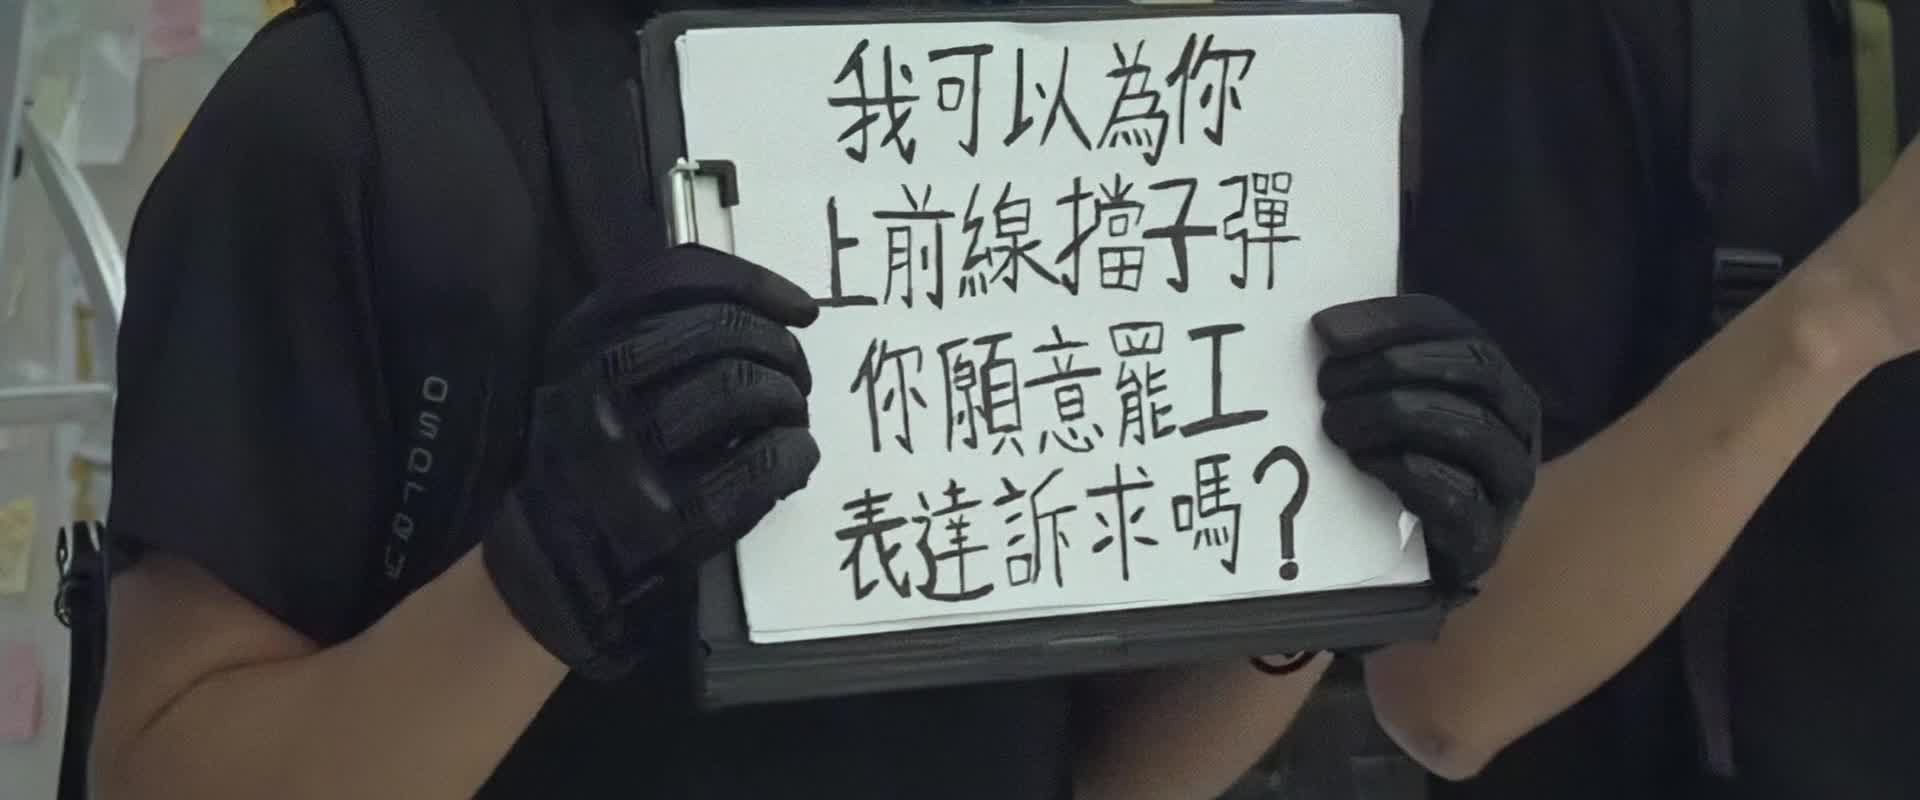 我可以為你
上前線擋子彈
你願意罷工
表達訴求嗎?